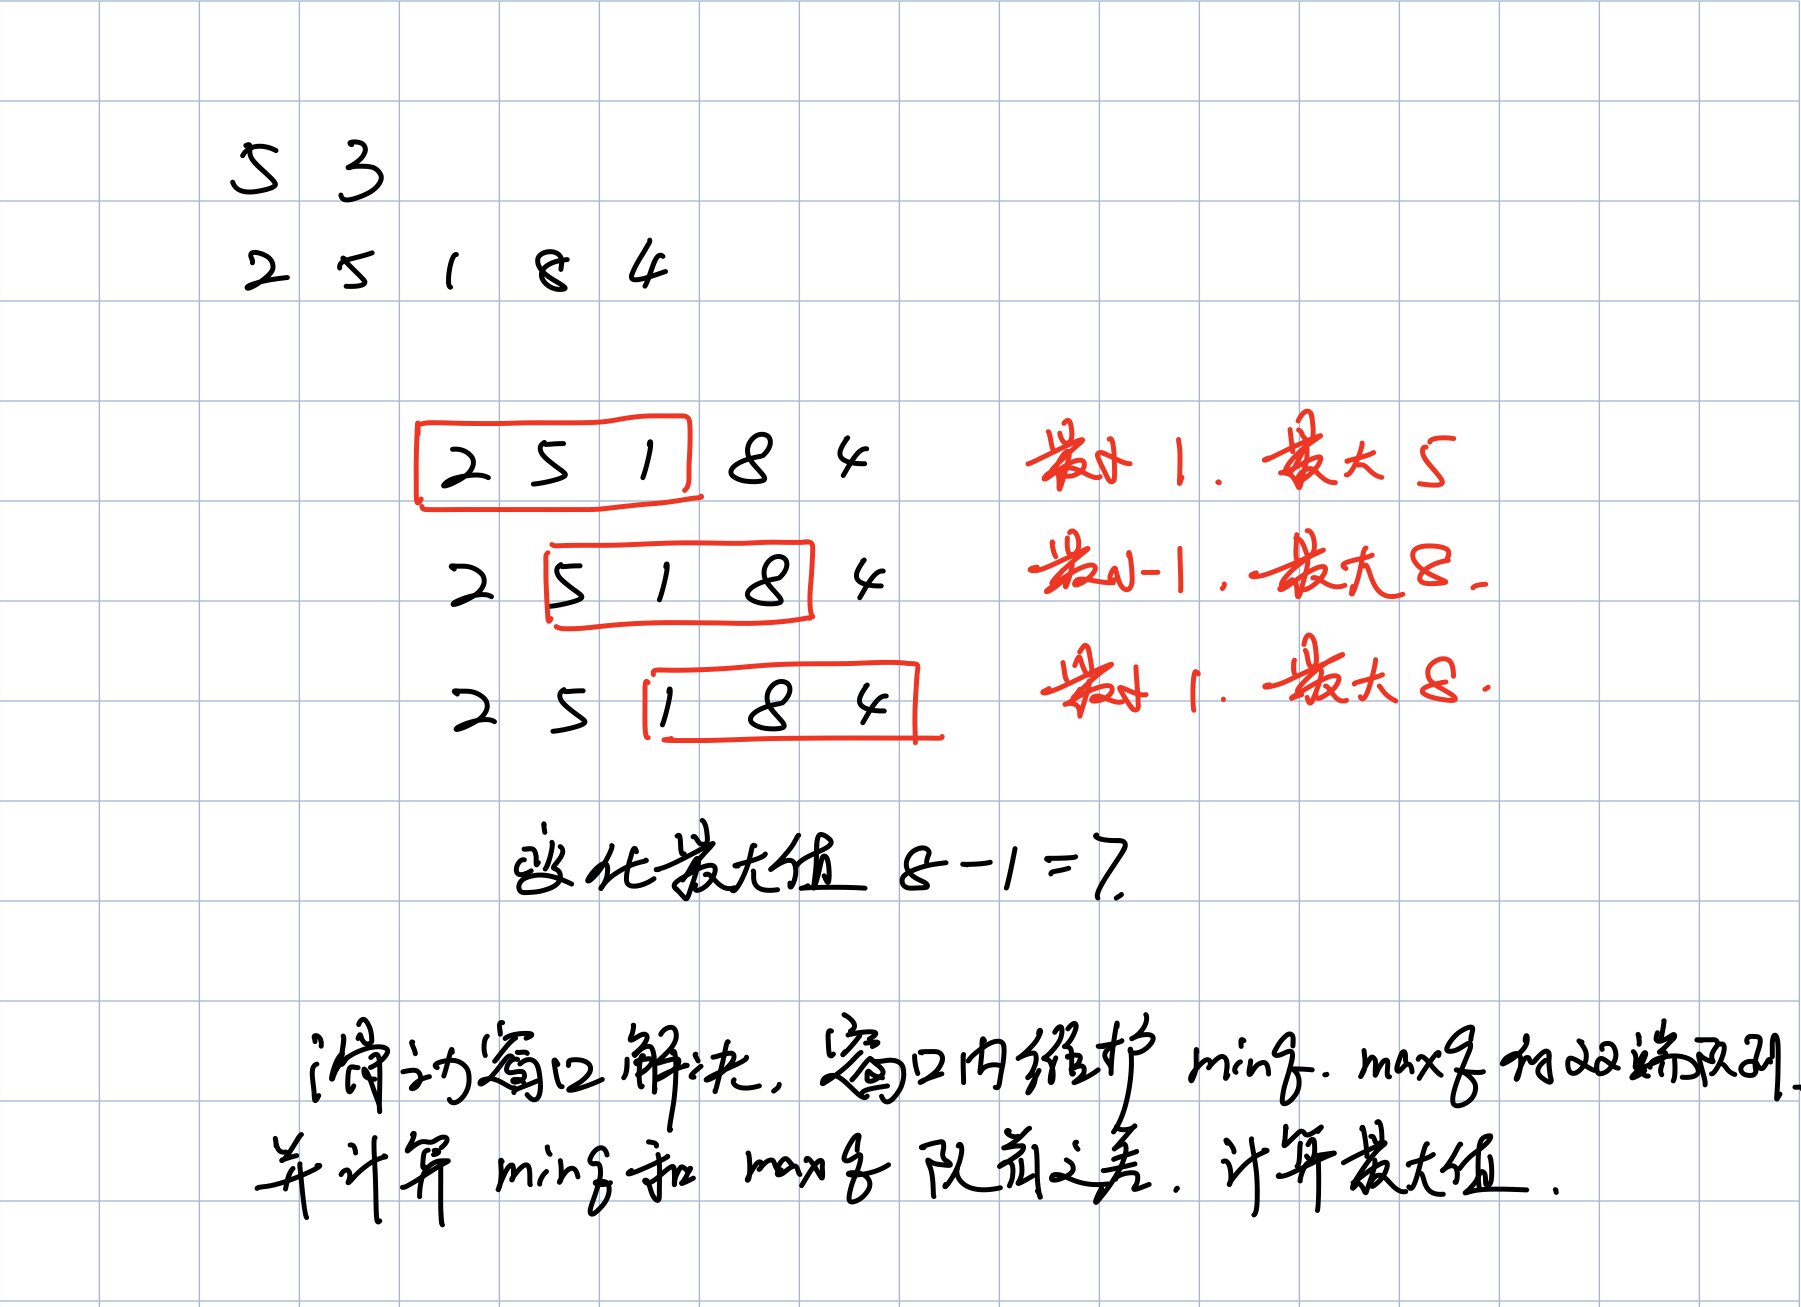 5 3
2 5 1 8 4
2 5 1 8 4 最小 1. 最大 5
2 5 1 8 4 最小 1. 最大 8.
2 5 1 8 4 最小 1. 最大 8.
变化最大值 8-1=7.
滑动窗口解决, 窗口内维护 minq. maxq 的双端队列.
并计算 minq 和 maxq 队首之差. 计算最大值.